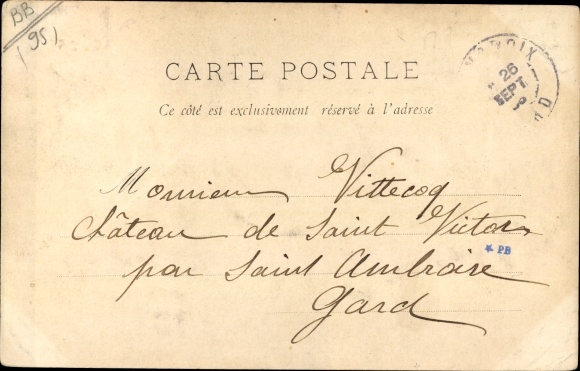 BB
(95)
CARTE POSTALE
Ce côté est exclusivement réservé à l'adresse
26
SEPT
Monsieur Vittecoq
château de Saint Victor
par Saint Ambroise
Gard
* PB